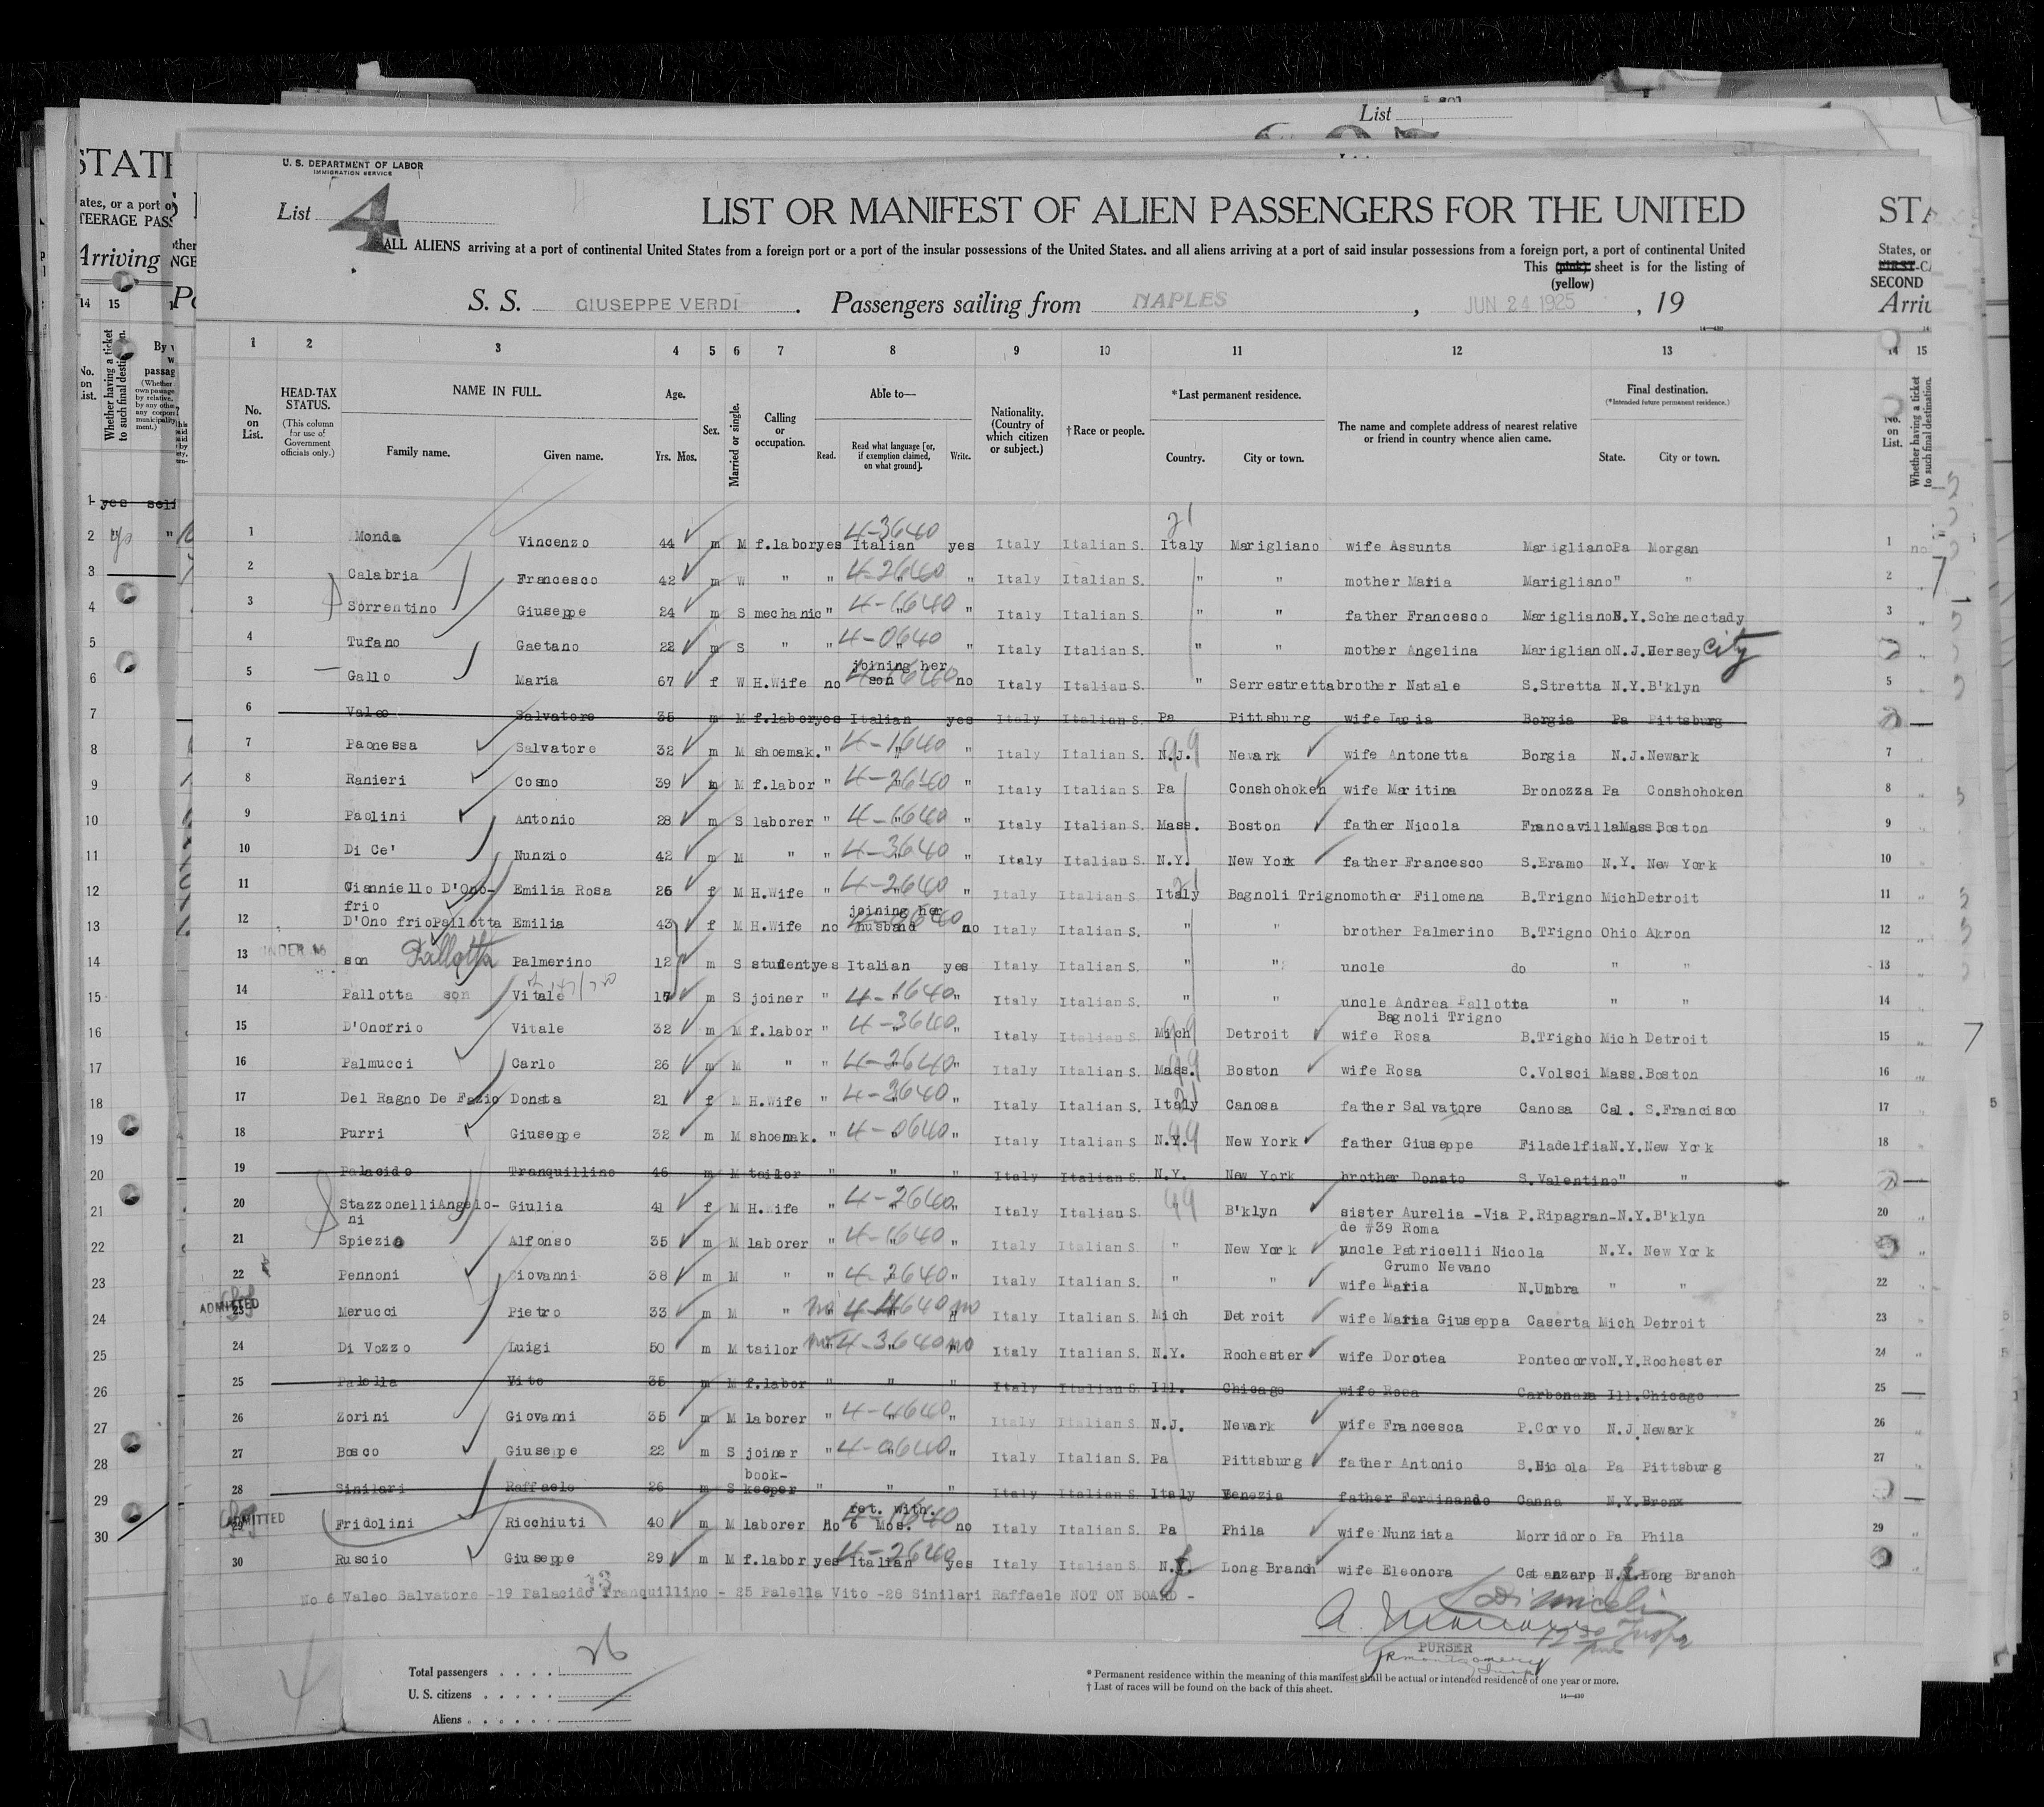 List
U. S. DEPARTMENT OF LABOR
IMMIGRATION SERVICE
List 4
LIST OR MANIFEST OF ALIEN PASSENGERS FOR THE UNITED
ALL ALIENS arriving at a port of continental United States from a foreign port or a port of the insular possessions of the United States, and all aliens arriving at a port of said insular possessions from a foreign port, a port of continental United
This (pink) sheet is for the listing of
(yellow)
S. S. GIUSEPPE VERDI . Passengers sailing from NAPLES , JUN 24 1925 , 19
1 2 3 4 5 6 7 8 9 10 11 12 13
No. on List.
HEAD-TAX STATUS.
(This column for use of Government officials only.)
NAME IN FULL.
Family name. Given name.
Age.
Yrs. Mos.
Sex.
Married or single.
Calling or occupation.
Able to—
Read. Read what language [or, if exemption claimed, on what ground]. Write.
Nationality. (Country of which citizen or subject.)
†Race or people.
*Last permanent residence.
Country. City or town.
The name and complete address of nearest relative or friend in country whence alien came.
Final destination.
(*Intended future permanent residence.)
State. City or town.
1 Monda Vincenzo 44 m M f.labor yes 4-3640 Italian yes Italy Italian S. Italy Marigliano wife Assunta Marigliano Pa Morgan
2 Calabria Francesco 42 m W " " 4-2640 " " Italy Italian S. " " mother Maria Marigliano " "
3 Sorrentino Giuseppe 24 m S mechanic " 4-1640 " " Italy Italian S. " " father Francesco Marigliano N.Y. Schenectady
4 Tufano Gaetano 22 m S " " 4-0640 " " Italy Italian S. " " mother Angelina Marigliano N.J. Jersey City
5 Gallo Maria 67 f W H.Wife no joining her son no Italy Italian S. " Serrestretta brother Natale S.Stretta N.Y. B'klyn
6 Valeo Salvatore 35 m M f.labor yes Italian yes Italy Italian S. Pa Pittsburg wife Lucia Borgia Pa Pittsburg
7 Paonessa Salvatore 32 m M shoemak. " 4-1640 " " Italy Italian S. N.J. 99 Newark wife Antonetta Borgia N.J. Newark
8 Ranieri Cosmo 39 m M f.labor " 4-2640 " " Italy Italian S. Pa Conshohoken wife Maritina Bronozza Pa Conshohoken
9 Paolini Antonio 28 m S laborer " 4-1640 " " Italy Italian S. Mass. Boston father Nicola Francavilla Mass. Boston
10 Di Ce' Nunzio 42 m M " " 4-3640 " Italy Italian S. N.Y. New York father Francesco S.Eramo N.Y. New York
11 Cianniello D'Ono- Emilia Rosa 26 f M H.Wife " 4-2640 " " Italy Italian S Italy Bagnoli Trigno mother Filomena B.Trigno Mich Detroit
frio
12 D'Ono frio Pallotta Emilia 43 f M H.Wife no joining her husband no Italy Italian S. " " brother Palmerino B.Trigno Ohio Akron
13 UNDER 16 son Pallotta Palmerino 12 m S student yes Italian yes Italy Italian S. " " uncle do " "
14 Pallotta son Vitale 17 m S joiner " 4-1640 " Italy Italian S. " " uncle Andrea Pallotta " "
Bagnoli Trigno
15 D'Onofrio Vitale 32 m M f.labor " 4-3640 " Italy Italian S Mich 99 Detroit wife Rosa B.Trigno Mich Detroit
16 Palmucci Carlo 26 m M " " 4-2640 " Italy Italian S. Mass. 99 Boston wife Rosa C.Volsci Mass. Boston
17 Del Ragno De Fazio Donata 21 f M H.Wife " 4-3640 " Italy Italian S. Italy Canosa father Salvatore Canosa Cal. S.Francisco
18 Purri Giuseppe 32 m M shoemak. " 4-0640 " Italy Italian S N.Y. 99 New York father Giuseppe Filadelfia N.Y. New York
19 Palacido Tranquillino 46 m M tailor " " " Italy Italian S. N.Y. New York brother Donato S.Valentino " "
20 Stazzonelli Angelo- Giulia 41 f M H.Wife " 4-2640 " Italy Italian S. 99 B'klyn sister Aurelia -Via P.Ripagran- N.Y. B'klyn
ni de #39 Roma
21 Spiezio Alfonso 35 m M laborer " 4-1640 " Italy Italian S " New York uncle Patricelli Nicola N.Y. New York
Grumo Nevano
22 Pennoni Giovanni 38 m M " " 4-2640 " Italy Italian S. " " wife Maria N.Umbra " "
ADMITTED
23 Merucci Pietro 33 m M " no 4-4640 no Italy Italian S. Mich Detroit wife Maria Giuseppa Caserta Mich Detroit
24 Di Vozzo Luigi 50 m M tailor no 4-3640 no Italy Italian S. N.Y. Rochester wife Dorotea Pontecorvo N.Y. Rochester
25 Palella Vito 35 m M f.labor " " " Italy Italian S. Ill. Chicago wife Rosa Carbonara Ill. Chicago
26 Zorini Giovanni 35 m M laborer " 4-4640 " Italy Italian S. N.J. Newark wife Francesca P.Corvo N.J. Newark
27 Bosco Giuseppe 22 m S joiner " 4-0640 " Italy Italian S. Pa Pittsburg father Antonio S.Nicola Pa Pittsburg
28 Sinilari Raffaele 26 m S book-keeper " " " Italy Italian S. Italy Venezia father Ferdinando Canna N.Y. Bronx
ADMITTED
29 Fridolini Ricchiuti 40 m M laborer No ret. with. 6 Mos. no Italy Italian S. Pa Phila wife Nunziata Morridoro Pa Phila
30 Ruscio Giuseppe 29 m M f.labor yes 4-2640 Italian yes Italy Italian S. N.J. Long Branch wife Eleonora Catanzaro N.J. Long Branch
No 6 Valeo Salvatore -19 Palacido Tranquillino - 25 Palella Vito -28 Sinilari Raffaele NOT ON BOARD -
PURSER
Total passengers . . . . 26
U. S. citizens . . . . .
Aliens . . . . . .
4
* Permanent residence within the meaning of this manifest shall be actual or intended residence of one year or more.
† List of races will be found on the back of this sheet.
14—430
STA
States, or
FIRST-CA
SECOND
Arriv
14 15
No. on List.
Whether having a ticket to such final destination.
STATE
ates, or a port o
TEERAGE PASS
Arriving
14 15